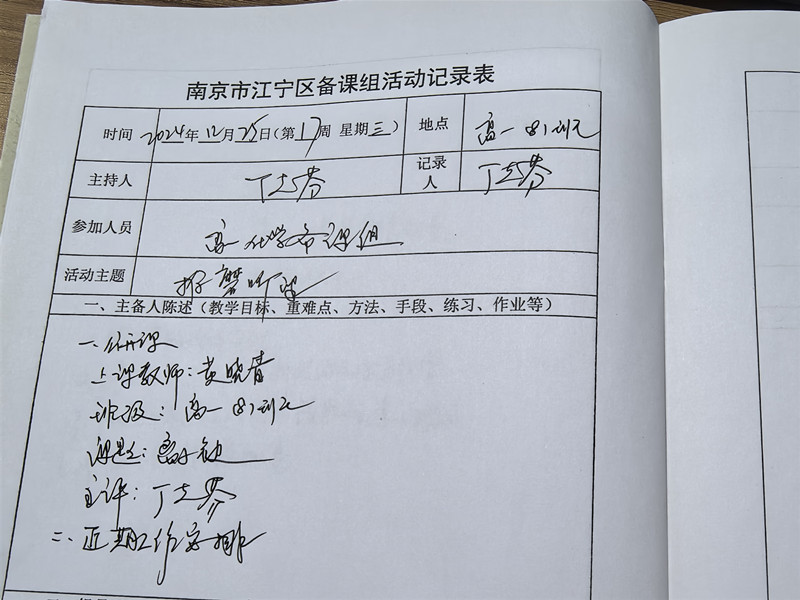 南京市江宁区备课组活动记录表
时间 2024年12月25日(第17周 星期三) 地点 高一(8)班
主持人 丁志芬 记录人 丁志芬
参加人员 高一化学备课组
活动主题 听
一、主备人陈述（教学目标、重难点、方法、手段、练习、作业等）
一、公开课
上课教师：黄晓青
班级：高一(8)班
课题：离子键
主评：丁志芬
二、近期工作安排